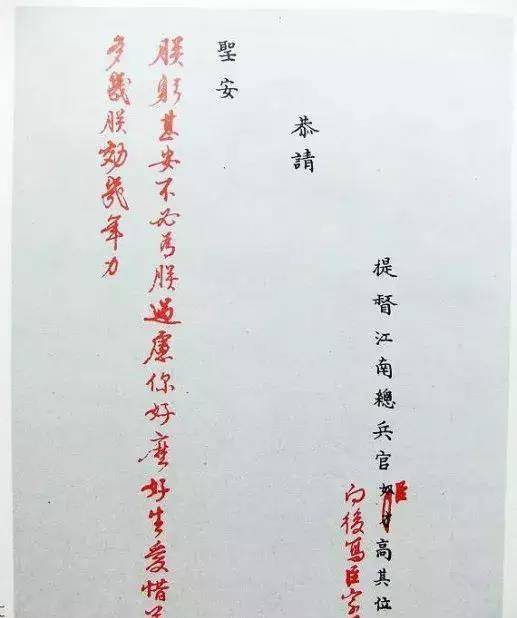 提督江南總兵官奴才高其位
臣
向後寫臣字
恭請
聖安
朕躬甚安不必為朕過慮你好麽好生愛惜
多與朕効幾年力